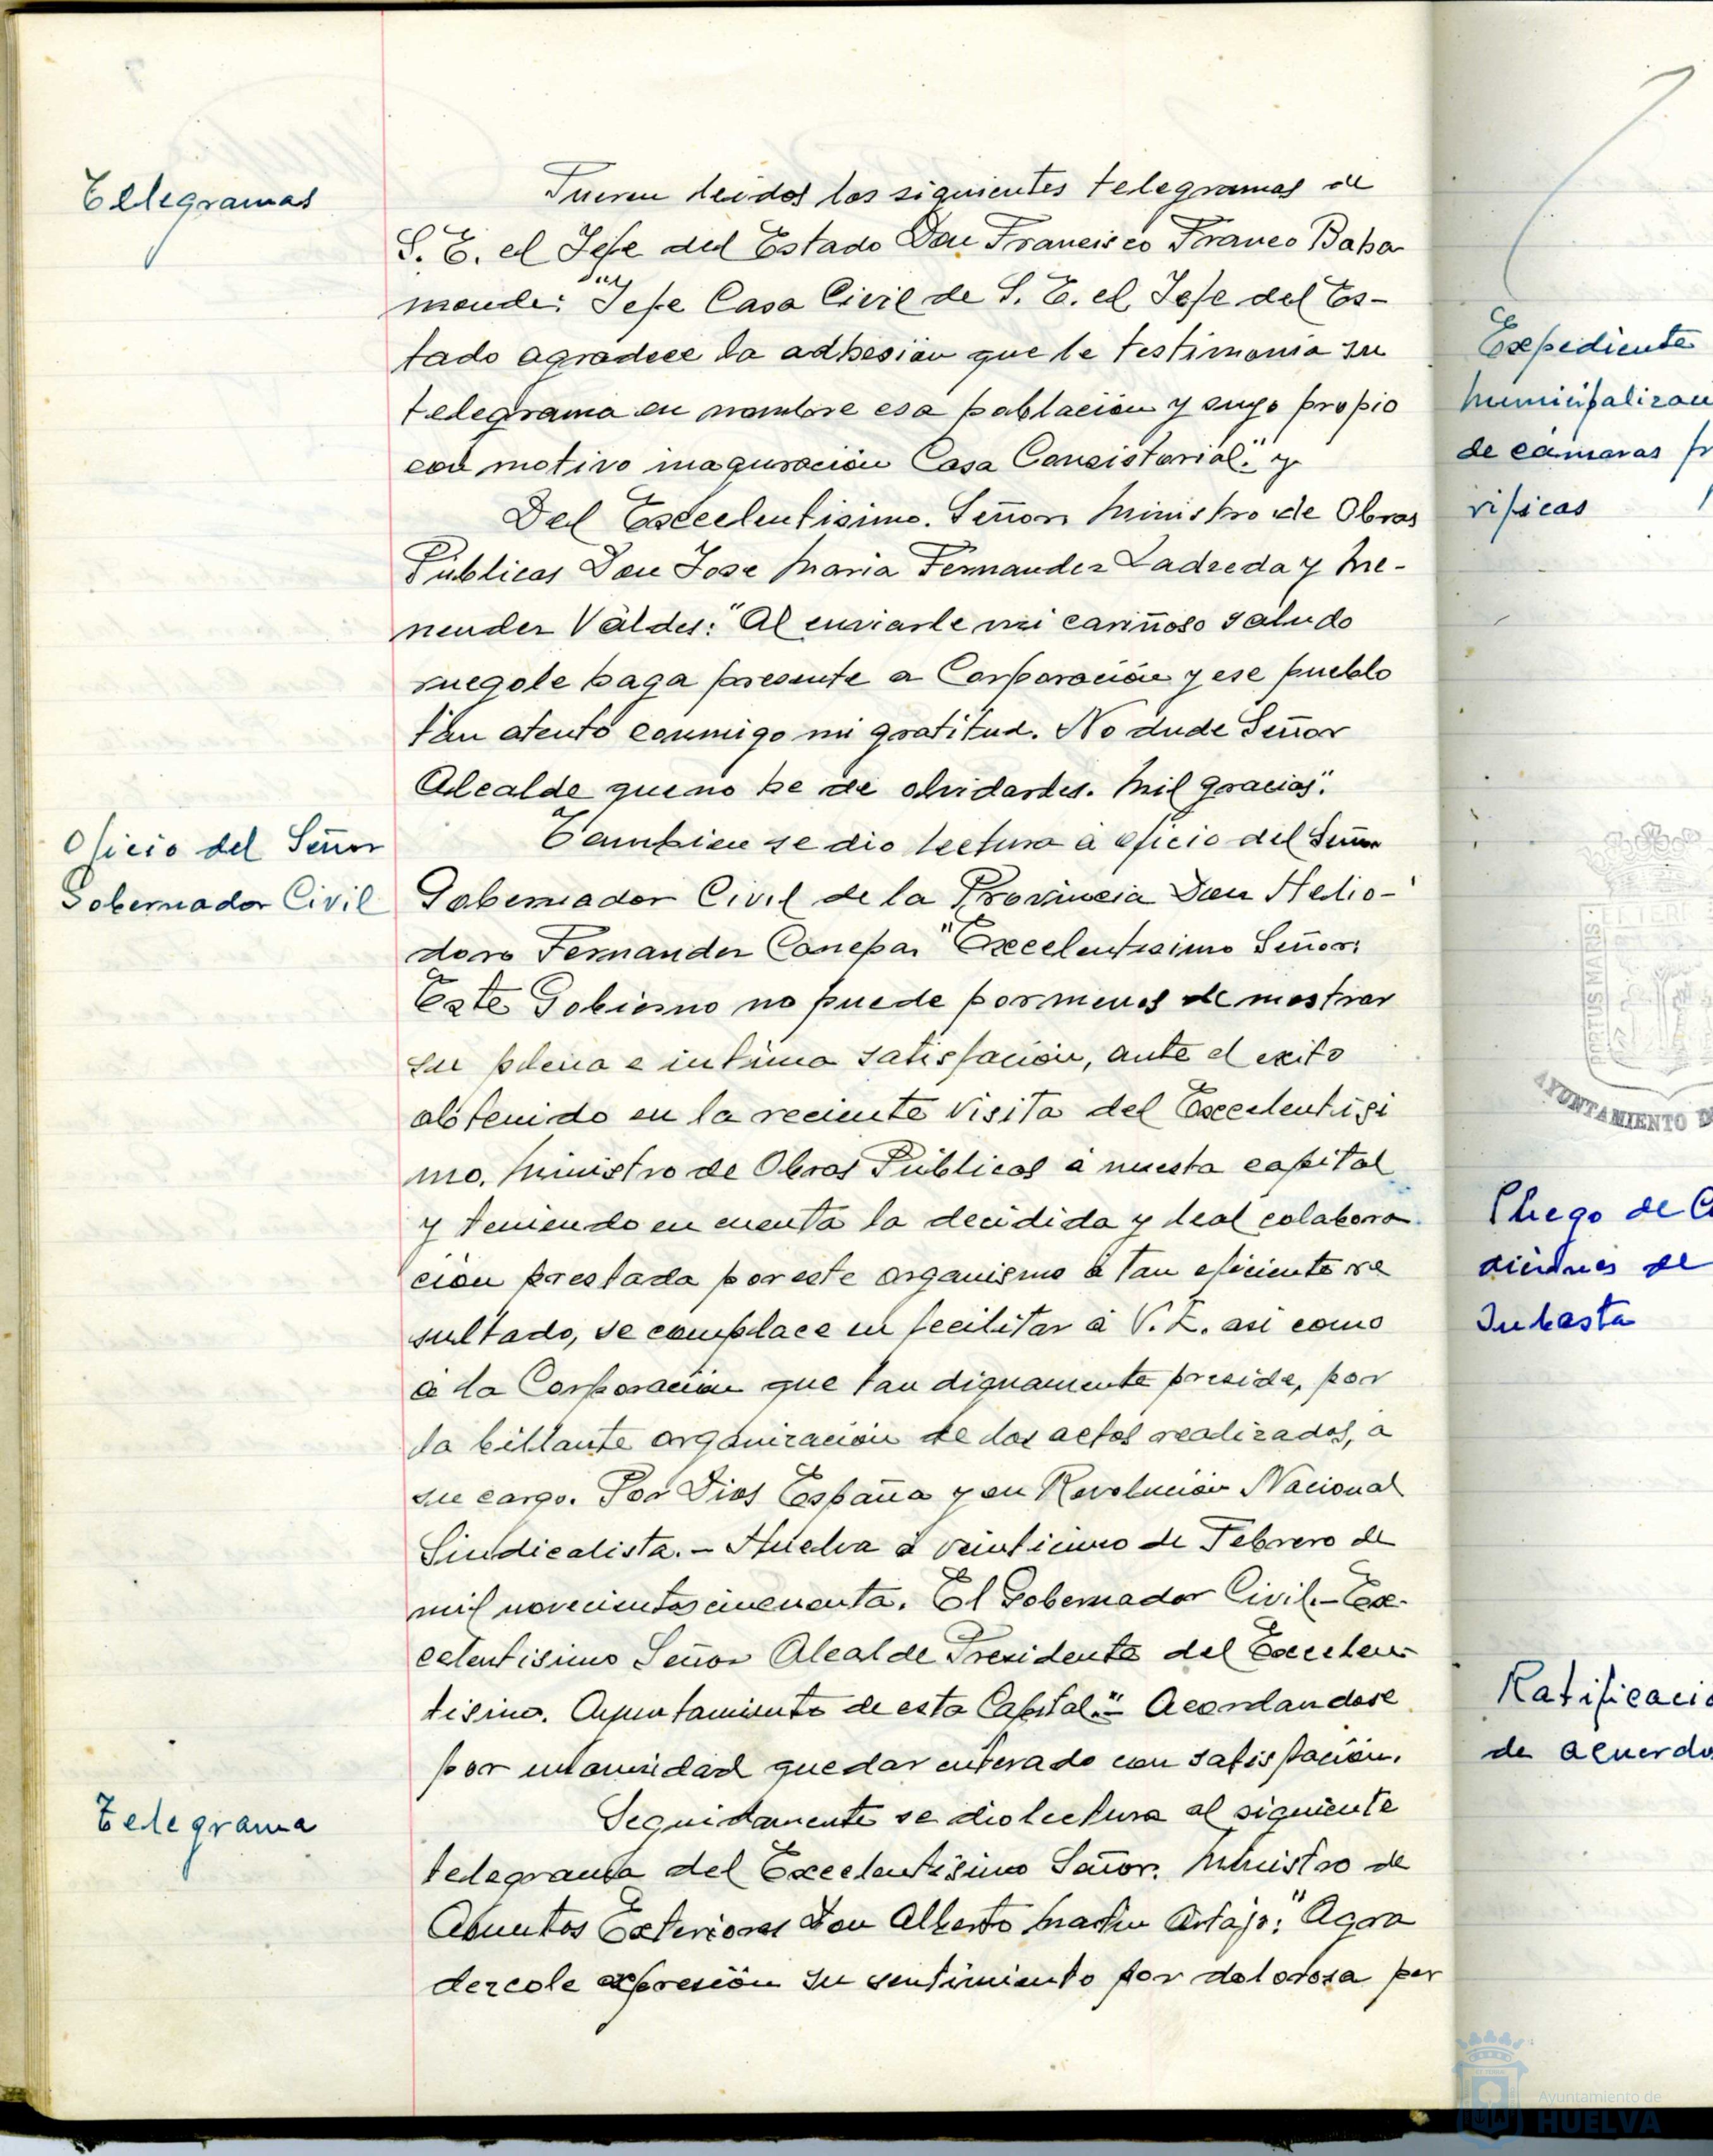 Telegramas
Fueron leidos los siguientes telegramas de
S. E. el Jefe del Estado Don Francisco Franco Baha
monde: Jefe Casa Civil de S. E. el Jefe del Es-
tado agradece la adhesión que le testimonia su
telegrama en nombre esa población y suyo propio
con motivo inaguración Casa Consistorial." y
Del Excelentisimo. Señor Ministro de Obras
Públicas Don Jose Maria Fernandez Ladreda y Me-
nendez Váldes: "Al enviarle mi cariñoso saludo
ruegole haga presente a Corporación y ese pueblo
tan atento conmigo mi gratitud. No dude Señor
Alcalde que no he de olvidarles. Mil gracias".
Oficio del Señor
Gobernador Civil
Tambien se dio lectura á oficio del Señor
Gobernador Civil de la Provincia Don Helio-
doro Fernandez Canepa: "Excelentisimo Señor:
Este Gobierno no puede por menos de mostrar
su plena e intima satisfación, ante el exito
obtenido en la reciente visita del Excelentisi
mo. Ministro de Obras Públicas á nuesta capital
y teniendo en cuenta la decidida y leal colabora
ción prestada por este organismo á tan eficiente re
sultado, se complace en fecilitar á V. E. asi como
á la Corporación que tan dignamente preside, por
la billante organización de los actos realizados, a
su cargo. Por Dios España y su Revolución Nacional
Sindicalista. - Huelva á veinticinco de Febrero de
mil novecientos cincuenta. El Gobernador Civil. - Ex-
celentisimo Señor Alcalde Presidente del Excelen-
tisimo. Ayuntamiento de esta Capital." - Acordandose
por unanimidad quedar enterado con satisfación.
Telegrama
Seguidamente se dio lectura al siguiente
telegrama del Excelentisimo Señor. Ministro de
Asuntos Exteriores Don Alberto Martin Artajo: "Agra
dezcole expresión su sentimiento por dolorosa per
Expediente
Municipalizaci
de cámaras fr
rificas
PORTUS MARIS ET TERR
AYUNTAMIENTO D
Pliego de Co
diciones de
Subasta
Ratificació
de acuerdo
Ayuntamiento de
HUELVA